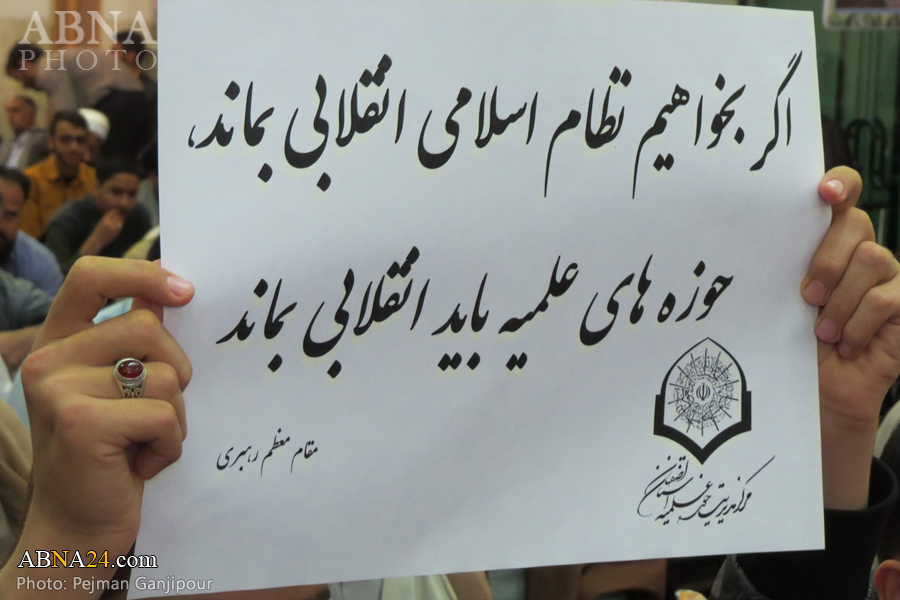 ABNA
PHOTO
اگر بخواهیم نظام اسلامی انقلابی بماند،
حوزه های علمیه باید انقلابی بماند
مقام معظم رهبری
مرکز مدیریت حوزه علمیه
استان اصفهان
ABNA24.com
Photo: Pejman Ganjipour